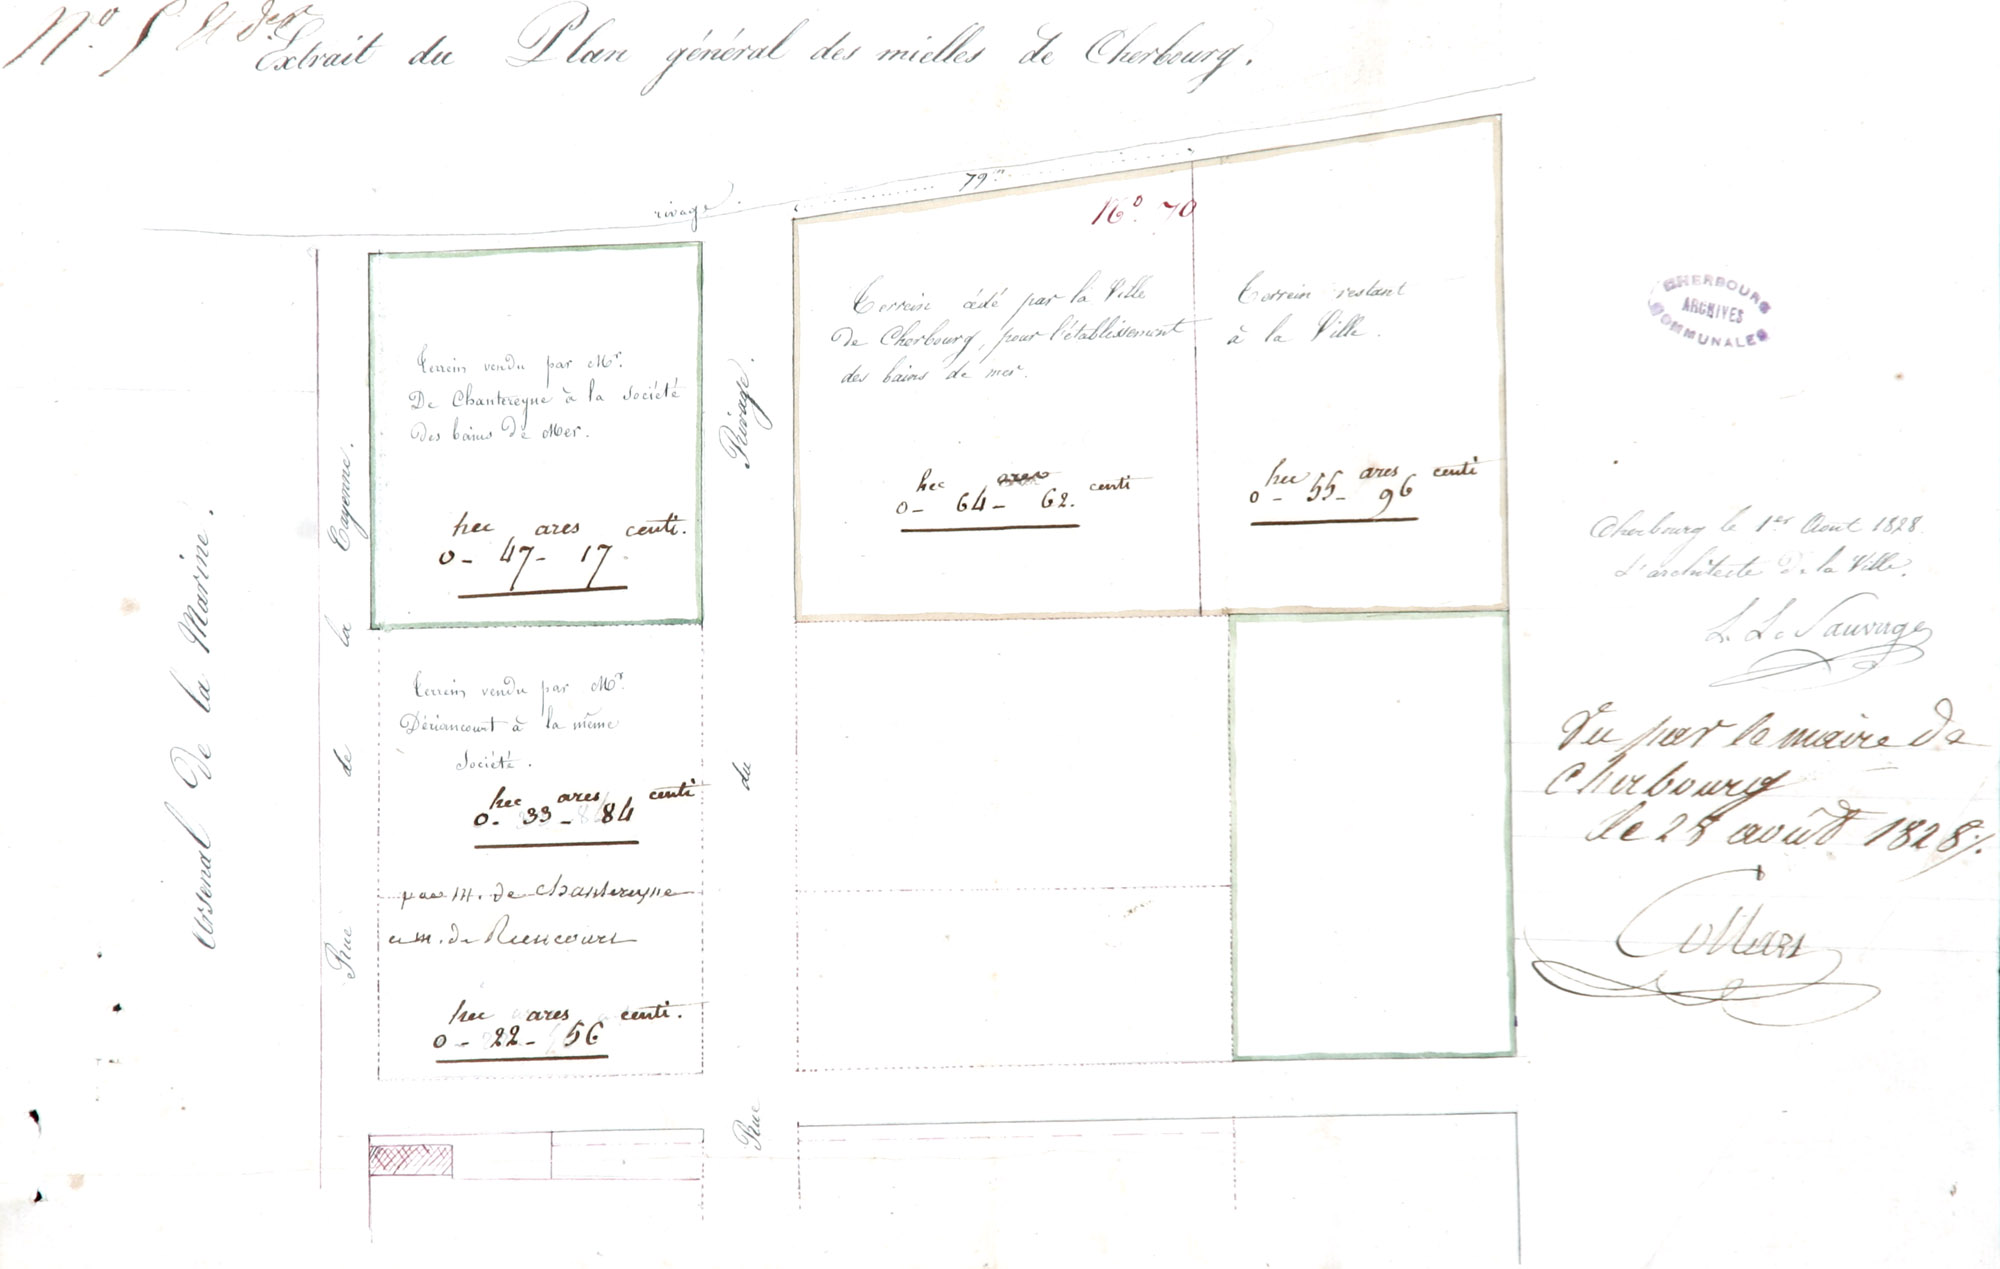 N°. 5
Extrait du Plan général des mielles de Cherbourg.
rivage.
79m
N°. 70
Terrein vendu par Mr.
De Chantereyne à la société
Des bains De Mer.
hec ares centi.
0 - 47 - 17
Terrein cédé par la Ville
de Cherbourg, pour l'établissement
des bains de mer.
hec ares centi
0 - 64 - 62.
Terrein restant
à la Ville.
hec ares centi
0 - 55 - 96
CHERBOURG
ARCHIVES
COMMUNALES
Cherbourg le 1er Aout 1828.
L'architecte De la Ville.
L. L. Sauvage
Vu par le maire de
Cherbourg
le 28 août 1828
Collart
Terrein vendu par Mr.
Dériencourt à la même
société.
hec ares centi
0 - 33 - 84
par M. de Chantereyne
a m. de Riencourt
hec ares centi.
0 - 22 - 56
Arsenal De la Marine.
Rue de la Cayenne.
Rue du Rivage.